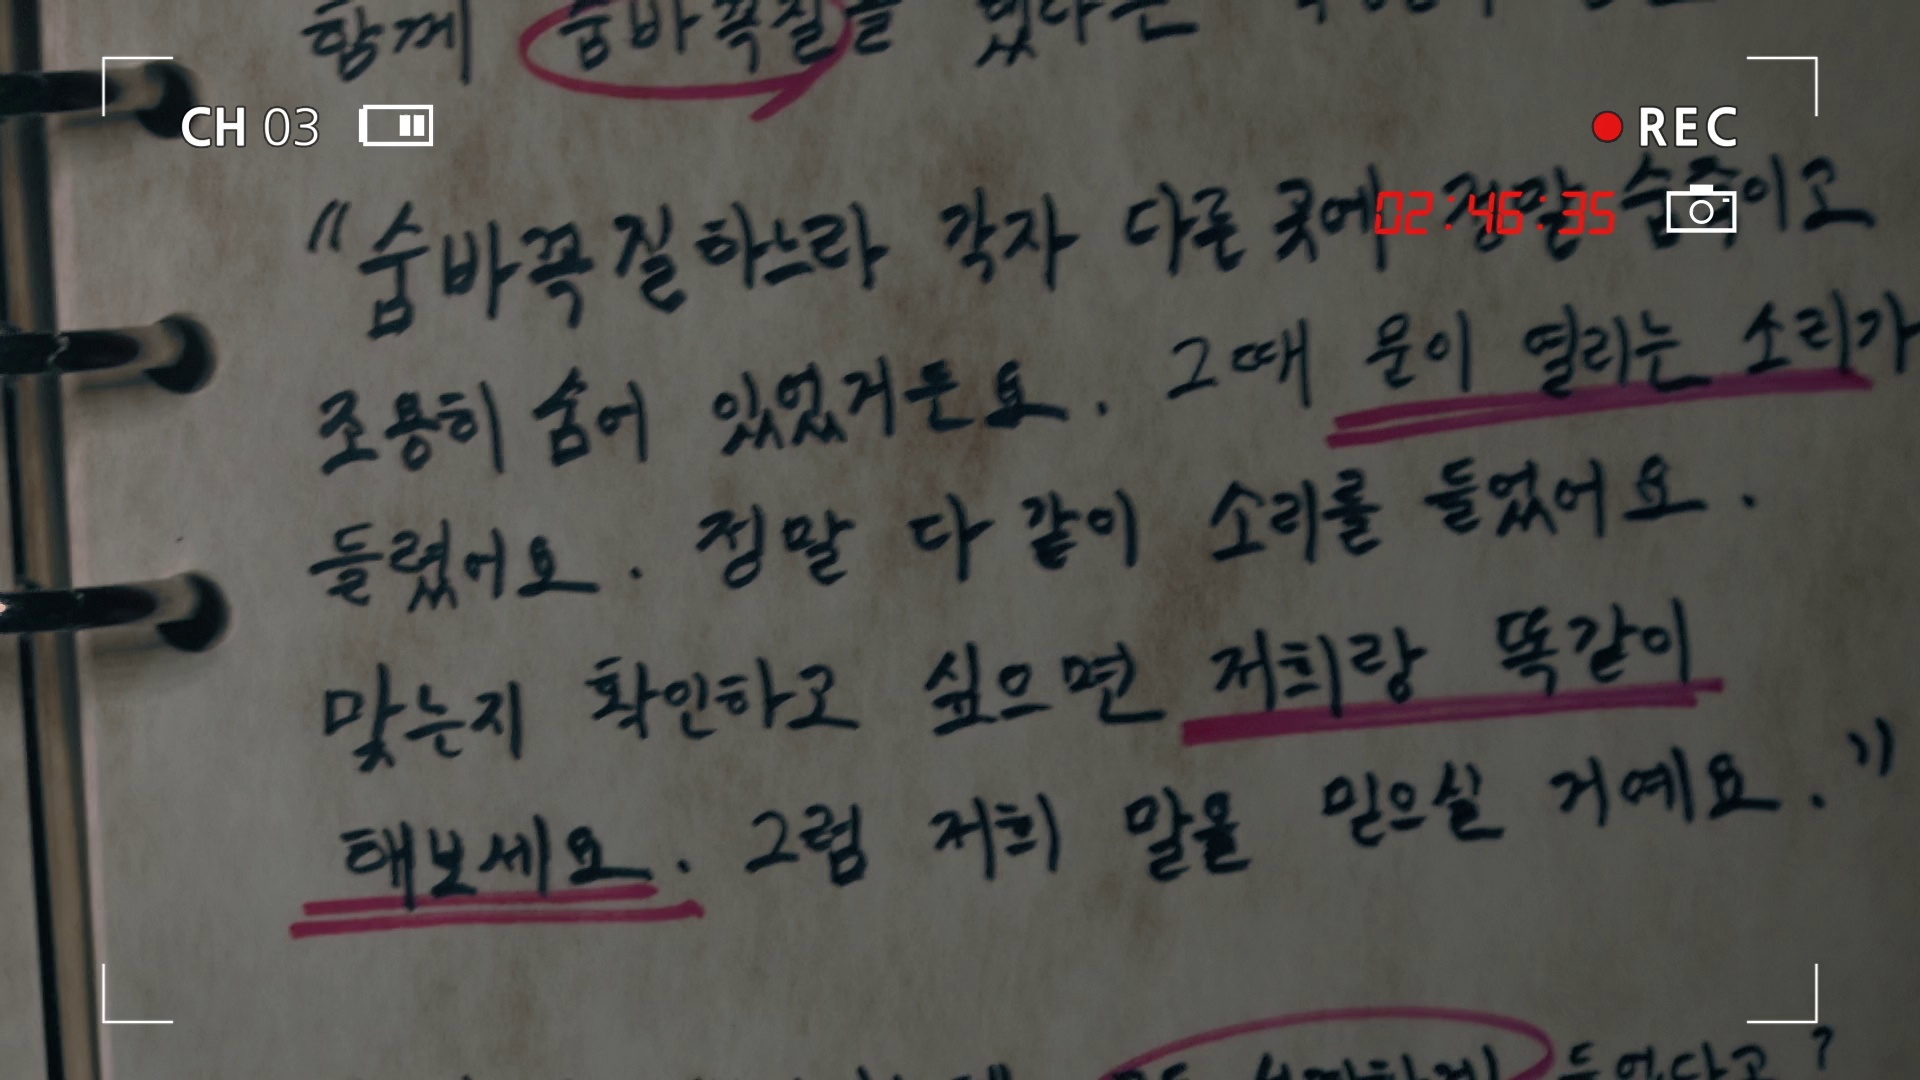 함께 숨바꼭질을 했다는
CH 03
REC
02:46:35
"숨바꼭질하느라 각자 다른 곳에 정말 숨죽이고
조용히 숨어 있었거든요. 그때 문이 열리는 소리가
들렸어요. 정말 다 같이 소리를 들었어요.
맞는지 확인하고 싶으면 저희랑 똑같이
해보세요. 그럼 저희 말을 믿으실 거예요."
들었다고?